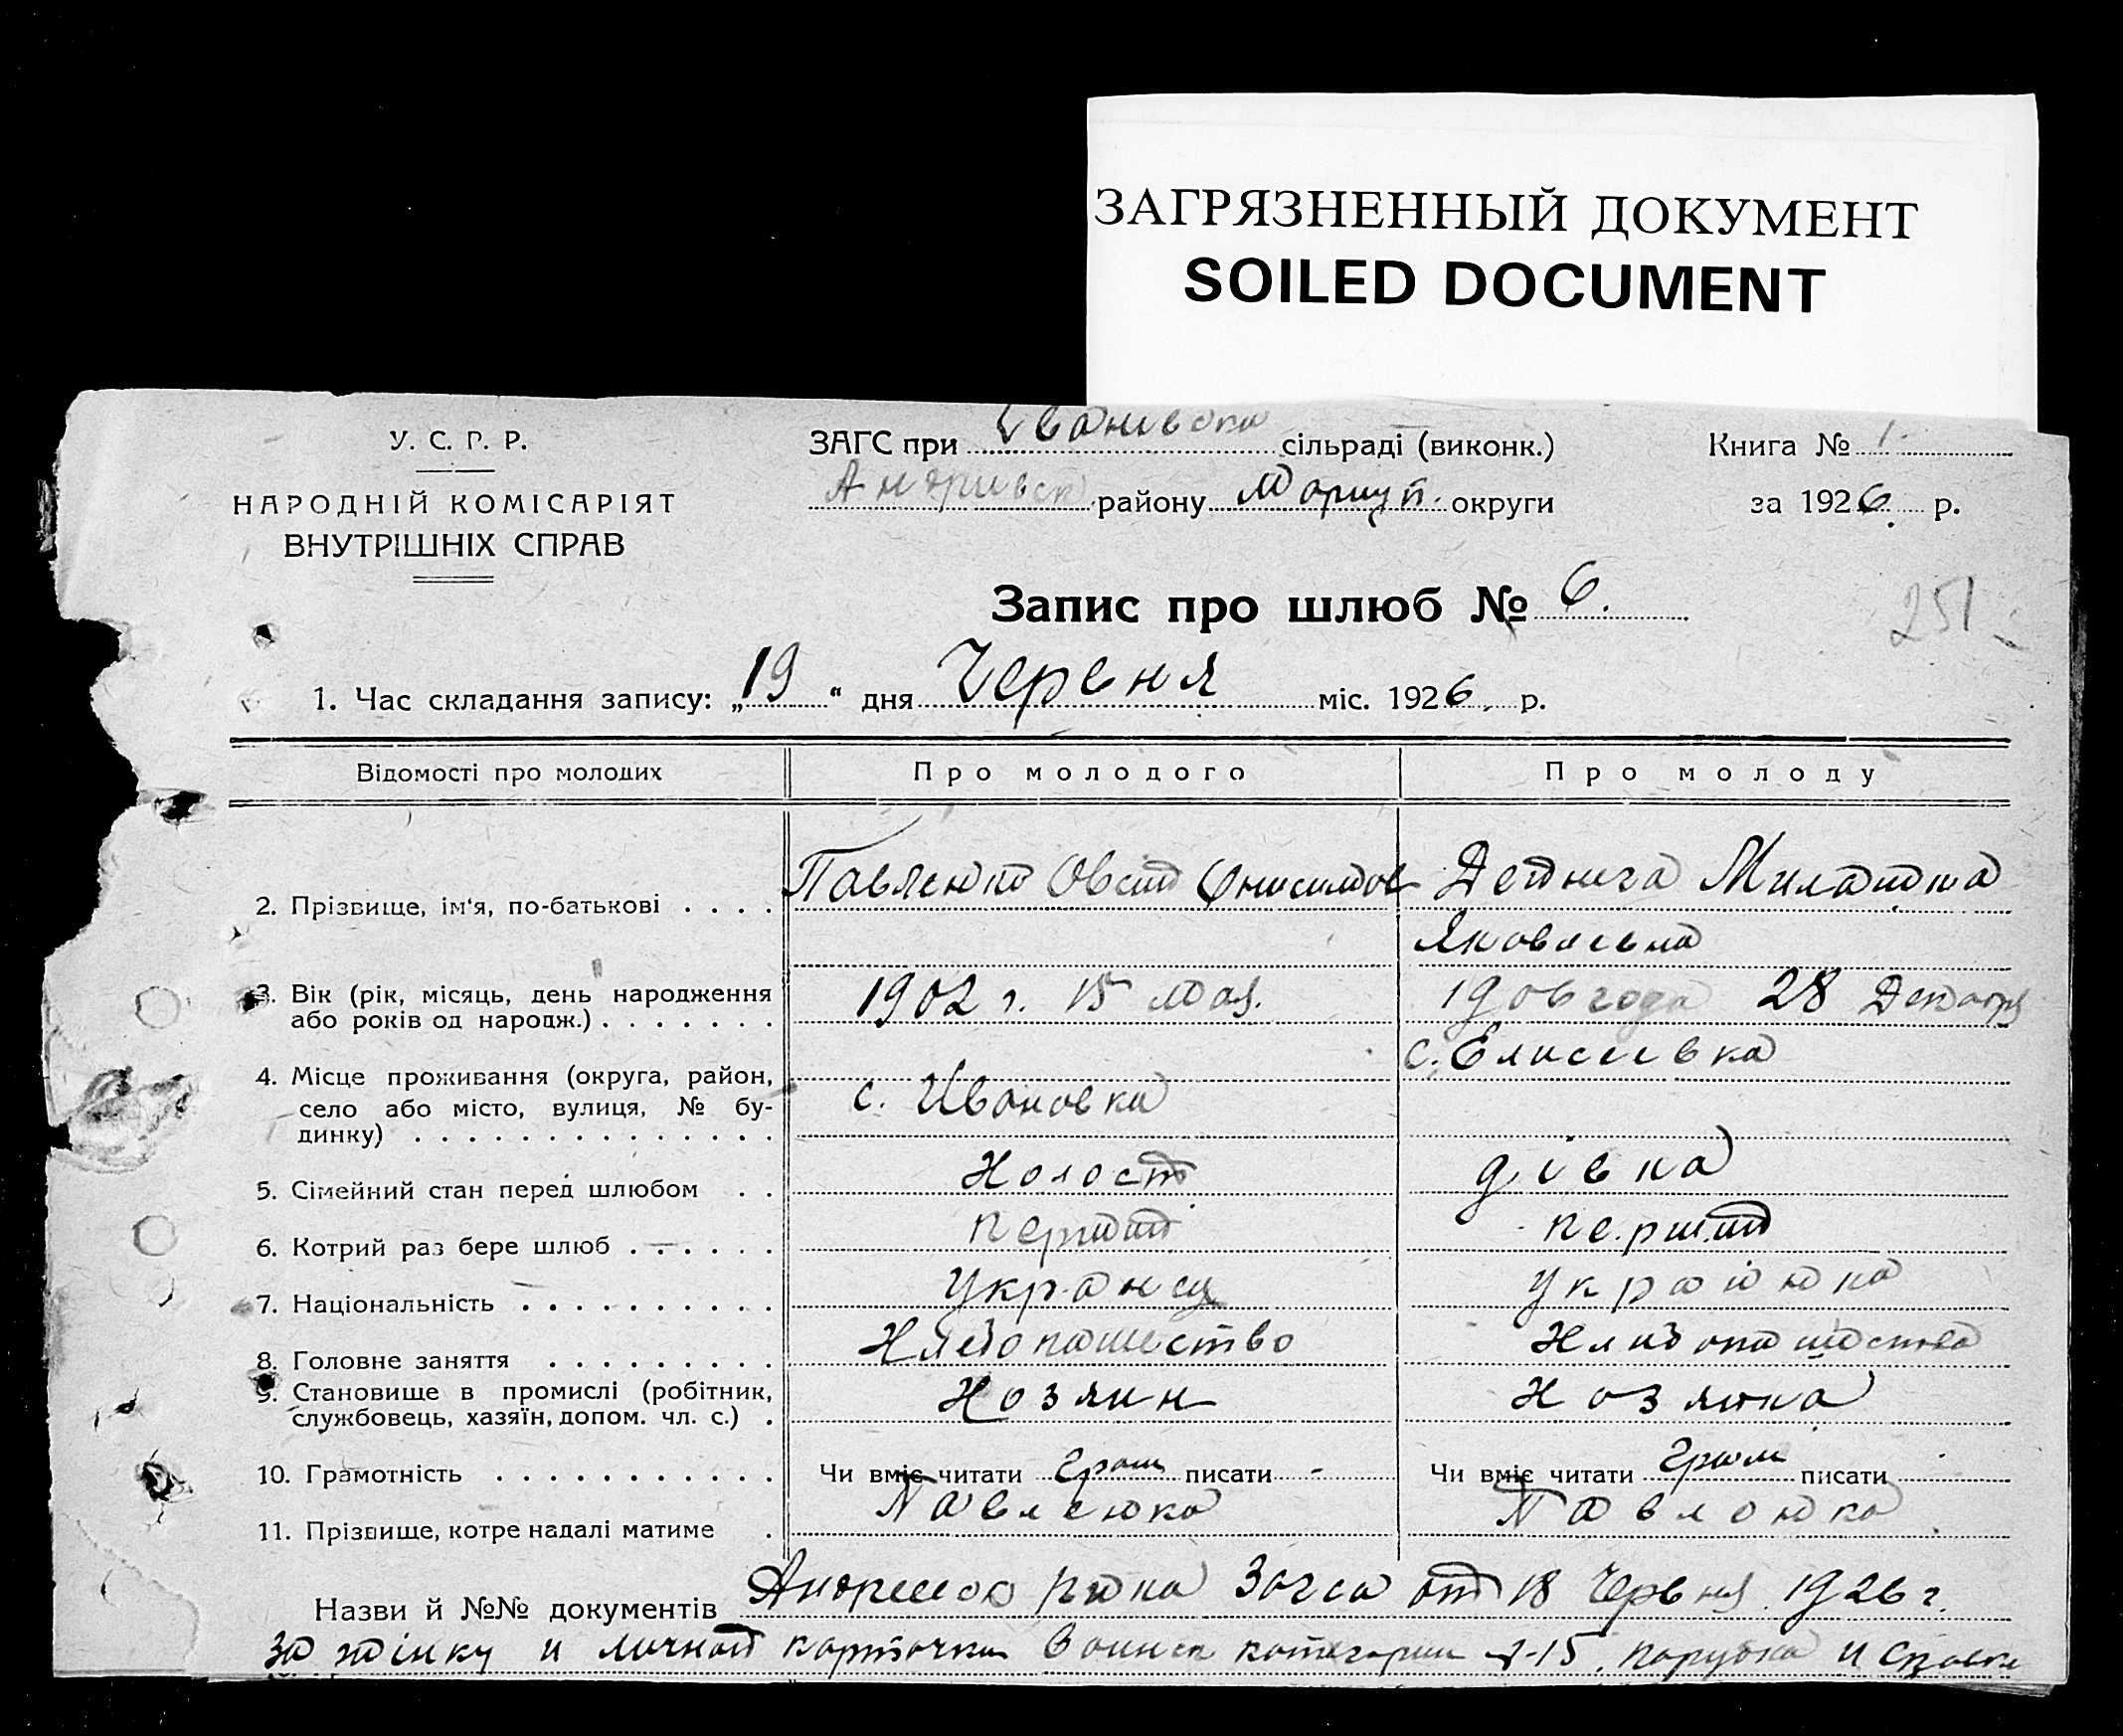 ЗАГРЯЗНЕННЫЙ ДОКУМЕНТ
SOILED DOCUMENT
У. С. Р. Р.
НАРОДНІЙ КОМІСАРІЯТ
ВНУТРІШНІХ СПРАВ
ЗАГС при Іванивска сільраді (виконк.)
Книга № 1.
Андривск району Мориуп. округи
за 1926 р.
Запис про шлюб № 6.
251
1. Час складання запису: „19“ дня Червня міс. 1926. р.
Відомості про молодих
Про молодого
Про молоду
2. Прізвище, ім'я, по-батькові . . . . Павленко Онисимов
Милашка
Яковлевна
3. Вік (рік, місяць, день народження
або років од народж.) . . . . . . . 1902 г. 15 мая.
1906 года 28 Декабря
4. Місце проживання (округа, район,
село або місто, вулиця, № бу-
динку) . . . . . . . . . . . . . . .
с. Ивановка
с. Елисеевка
5. Сімейний стан перед шлюбом . . Холост
дівка
6. Котрий раз бере шлюб . . . . . . перший
перший
7. Національність . . . . . . . . . . Укранец
Українка
8. Головне заняття . . . . . . . . . Хлебопашество
Хлибопашество
9. Становище в промислі (робітник,
службовець, хазяїн, допом. чл. с.) . Хозяин
Хозяйка
10. Грамотність . . . . . . . . . . . Чи вміє читати Грам писати -
Чи вміє читати Грам писати
11. Прізвище, котре надалі матиме .
Назви й №№ документів Загса от 18 Червня 1926 г.
за жінку и личной карточки Воинск категории 1-15. парубка и